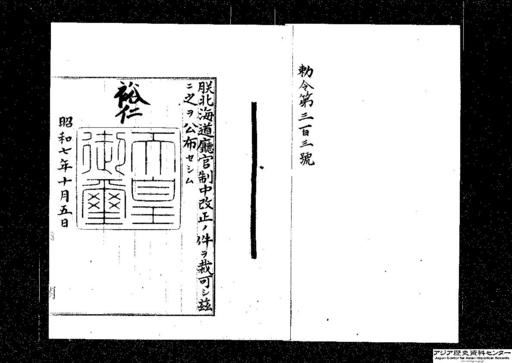 勅令第三百三號
朕北海道廳官制中改正ノ件ヲ裁可シ茲
ニ之ヲ公布セシム
裕仁
天皇御璽
昭和七年十月五日
アジア歴史資料センター
Japan Center for Asian Historical Records